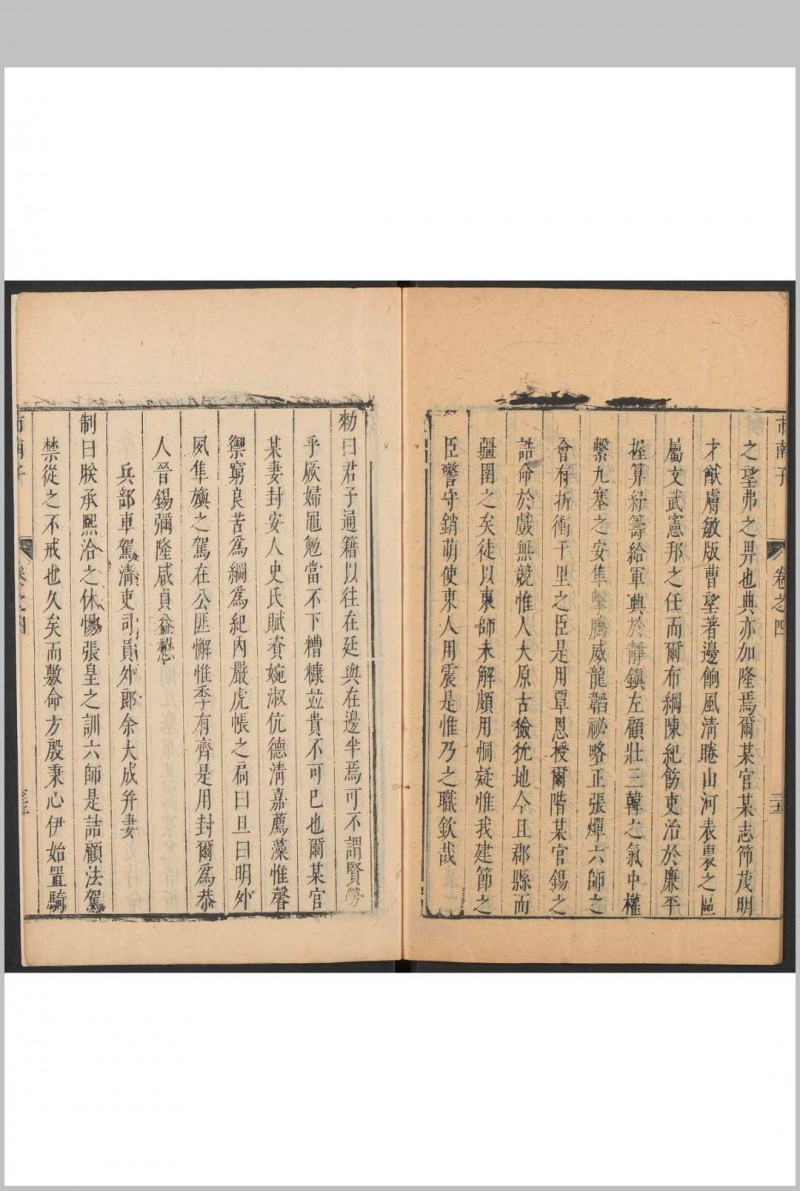 市南子 卷之四 三五
之聖弗之畀也典亦加隆焉爾某官某志篩茂明
才猷膚敏版曹望著邊餉風清睠山河表裏之區
屬文武憲邦之任而爾布綱陳紀飭吏治於廉平
握算紆籌給軍興於靜鎮左顧壯三韓之氣中權
繫九塞之安隼擊騰威龍韜祕略正張燀六師之
會有折衝千里之臣是用覃恩授爾階某官錫之
誥命於戲無競惟人大原古獫狁地今且郡縣而
疆圉之矣徒以東師未解頗用恫疑惟我建節之
臣警守銷萌使東人用震是惟乃之職欽哉
勑曰君子通籍以往在廷與在邊半焉可不謂賢勞
乎厥婦黽勉當不下糟糠竝貴不可已也爾某官
某妻封安人史氏賦資婉淑伉德清嘉薦藻惟馨
禦窮良苦爲綱爲紀內嚴虎帳之扃曰旦曰明外
夙隼旟之駕在公匪懈惟季有齊是用封爾爲恭
人晉錫彌隆咸貞益懋
兵部車駕清吏司員外郎余大成幷妻
制曰朕承熙洽之休惕張皇之訓六師是詰顧法駕
禁從之不戒也久矣而敷命方殷秉心伊始置騎
市南子 卷之四